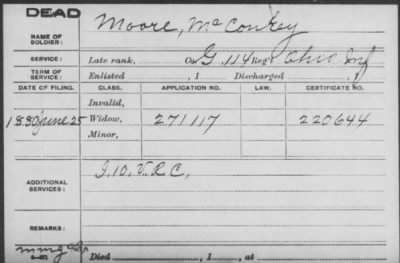 DEAD
NAME OF SOLDIER: Moore, McConkey
SERVICE: Late rank, Co G, 114 Reg't Ohio Inf
TERM OF SERVICE: Enlisted , 1 Discharged , 1
DATE OF FILING. CLASS. APPLICATION NO. LAW. CERTIFICATE NO.
Invalid,
1880 June 25 Widow, 271117 220644
Minor,
ADDITIONAL SERVICES: I. 10. V. R. C.,
REMARKS:
Died , 1 , at